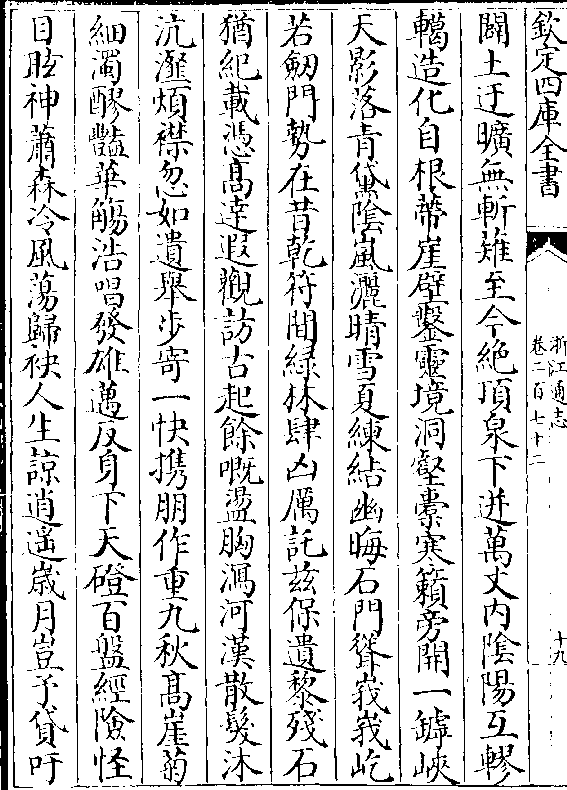 欽定四庫全書
浙江通志
卷二百七十二
十九
闢土迂曠無斬薙至今絶頂泉下迸萬丈内陰陽互轇
轕造化自根蔕崖壁鑿靈境洞壑槖寒籟旁開一罅峽
天影落青黛陰嵐灑晴雪夏練結幽晦石門聳峩峩屹
若劒門勢在昔乾符間緑林肆凶厲託兹保遺黎殘石
猶紀載憑髙逹遐觀訪古起餘嘅盪胸瀉河漢散髮沐
沆瀣煩襟忽如遺舉步寄一快携朋作重九秋髙崖菊
細濁醪豔華觴浩唱發雄邁反身下天磴百盤經險怪
目眩神蕭森冷風蕩歸袂人生諒逍遥歳月豈予貸吁